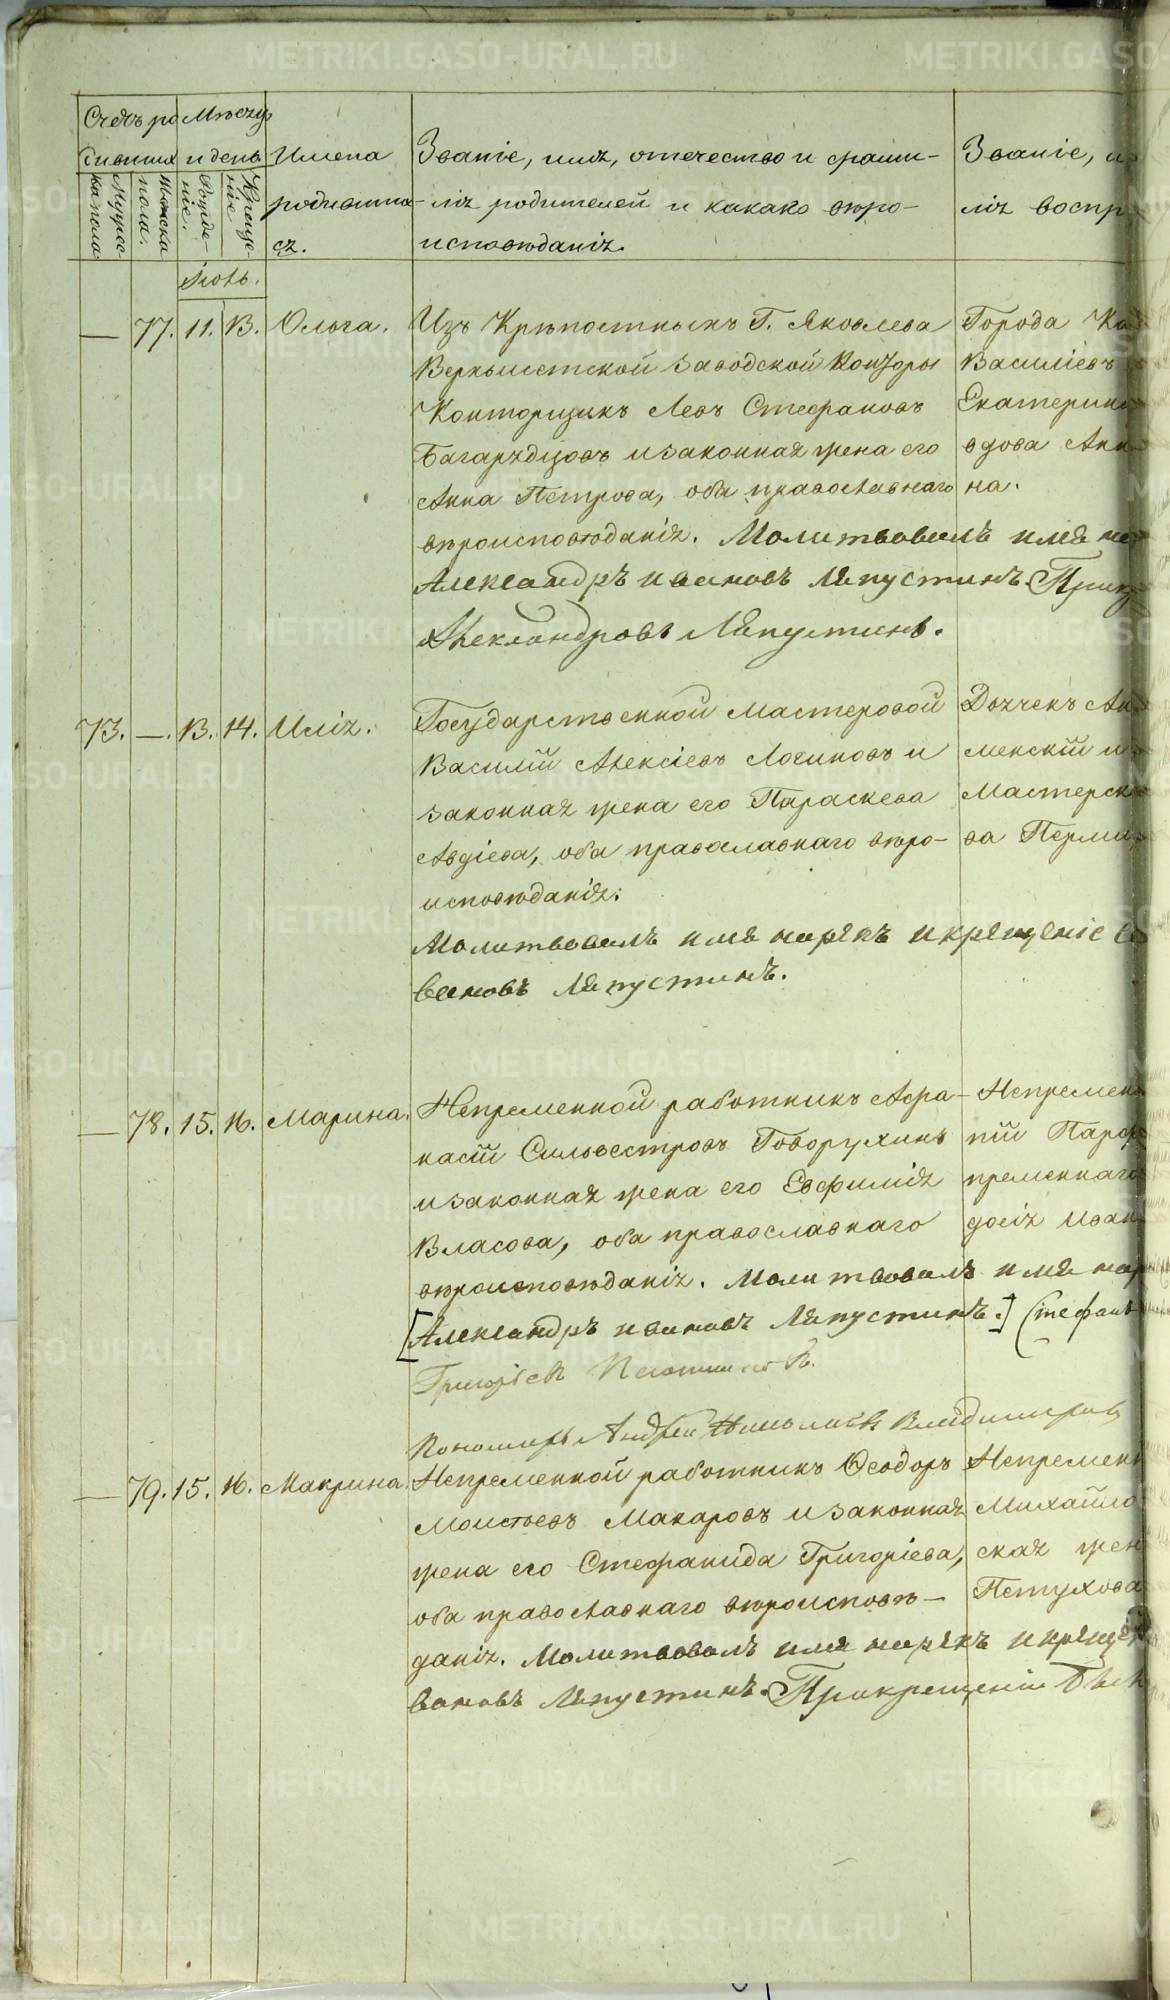 METRIKI.GASO-URAL.RU
Счетъ ро
дившихся
Мужес
ка пола
Женска
пола.
Мѣсяцъ
и день
Рожде-
ніе.
Креще-
ніе
Имена
родивших-
ся.
Званіе, имя, отечество и фами-
лія родителей и какаго вѣро-
исповѣданія.
Званіе, и
лія воспр
Іюль.
— 77. 11. 13. Ольга.
Изъ Крѣпостныхъ Г. Яковлева
Верхъисетской заводской Конторы
Конторщикъ Левъ Стефановъ
Багарядцовъ и законная жена его
Анна Петрова, оба православнаго
вѣроисповѣданія. Молитвовалъ имя на
Александръ Ивановъ Ляпустинъ. При
Александровъ Ляпустинъ.
Города Ка
Василіевъ
Екатерин
вдова Анн
на.
73. —. 13. 14. Илія.
Государственной мастеровой
Василій Алексіевъ Логиновъ и
законная жена его Параскева
Авдіева, оба православнаго вѣро-
исповѣданія.
Молитвовалъ имя нарекъ и крещеніе со
вановъ Ляпустинъ.
Ан
менскій и
Мастерск
ва Перми
— 78. 15. 16. Марина.
Непременной работникъ Афа-
насій Сильвестровъ Говорухинъ
и законная жена его Евфимія
Власова, оба православнаго
вѣроисповѣданія. Молитвовалъ имя нар
[Александръ Ивановъ Ляпустинъ.] Стефанъ
Григоріевъ
Пономарь Андрей
Непремен
пій Парф
пременнаго
досія Иван
— 79. 15. 16. Макрина.
Непременной работникъ Ѳеодоръ
Моисеевъ Макаровъ и законная
жена его Стефанида Григоріева,
оба православнаго вѣроисповѣ-
данія. Молитвовалъ имя нарекъ и креще
вановъ Ляпустинъ. При крещеніи был
Непремен
Михайло
ская жен
Петухова